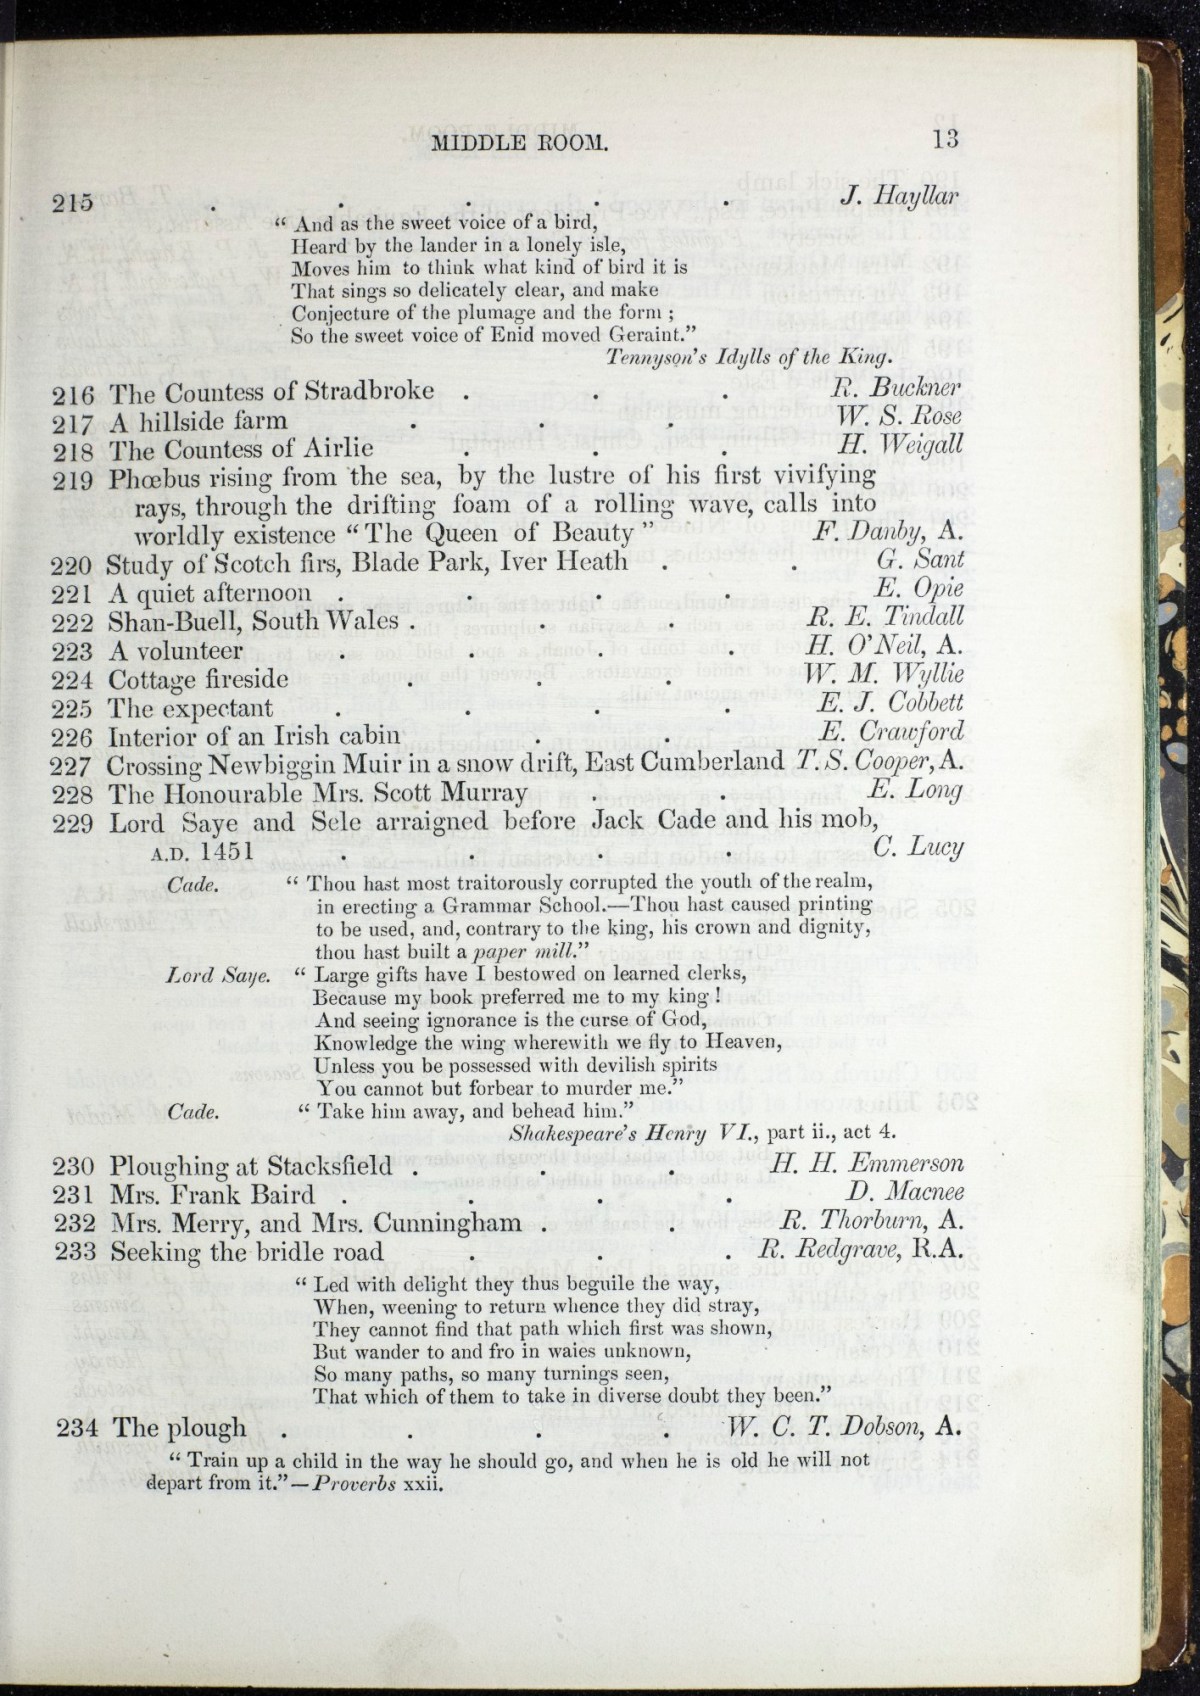 MIDDLE ROOM. 13
215 . . . . . J. Hayllar
“ And as the sweet voice of a bird,
Heard by the lander in a lonely isle,
Moves him to think what kind of bird it is
That sings so delicately clear, and make
Conjecture of the plumage and the form ;
So the sweet voice of Enid moved Geraint.”
Tennyson's Idylls of the King.
216 The Countess of Stradbroke . . . R. Buckner
217 A hillside farm . . . W. S. Rose
218 The Countess of Airlie . . . H. Weigall
219 Phœbus rising from the sea, by the lustre of his first vivifying
rays, through the drifting foam of a rolling wave, calls into
worldly existence “ The Queen of Beauty ” F. Danby, A.
220 Study of Scotch firs, Blade Park, Iver Heath . . G. Sant
221 A quiet afternoon . . . . E. Opie
222 Shan-Buell, South Wales . . . R. E. Tindall
223 A volunteer . . . . H. O'Neil, A.
224 Cottage fireside . . . W. M. Wyllie
225 The expectant . . . . E. J. Cobbett
226 Interior of an Irish cabin . . E. Crawford
227 Crossing Newbiggin Muir in a snow drift, East Cumberland T. S. Cooper, A.
228 The Honourable Mrs. Scott Murray . . E. Long
229 Lord Saye and Sele arraigned before Jack Cade and his mob,
A.D. 1451 . . . . C. Lucy
Cade. “ Thou hast most traitorously corrupted the youth of the realm,
in erecting a Grammar School.—Thou hast caused printing
to be used, and, contrary to the king, his crown and dignity,
thou hast built a paper mill.”
Lord Saye. “ Large gifts have I bestowed on learned clerks,
Because my book preferred me to my king !
And seeing ignorance is the curse of God,
Knowledge the wing wherewith we fly to Heaven,
Unless you be possessed with devilish spirits
You cannot but forbear to murder me.”
Cade. “ Take him away, and behead him.”
Shakespeare's Henry VI., part ii., act 4.
230 Ploughing at Stacksfield . . . H. H. Emmerson
231 Mrs. Frank Baird . . . . D. Macnee
232 Mrs. Merry, and Mrs. Cunningham . . R. Thorburn, A.
233 Seeking the bridle road . . . R. Redgrave, R.A.
“ Led with delight they thus beguile the way,
When, weening to return whence they did stray,
They cannot find that path which first was shown,
But wander to and fro in waies unknown,
So many paths, so many turnings seen,
That which of them to take in diverse doubt they been.”
234 The plough . . . . W. C. T. Dobson, A.
“ Train up a child in the way he should go, and when he is old he will not
depart from it.”—Proverbs xxii.